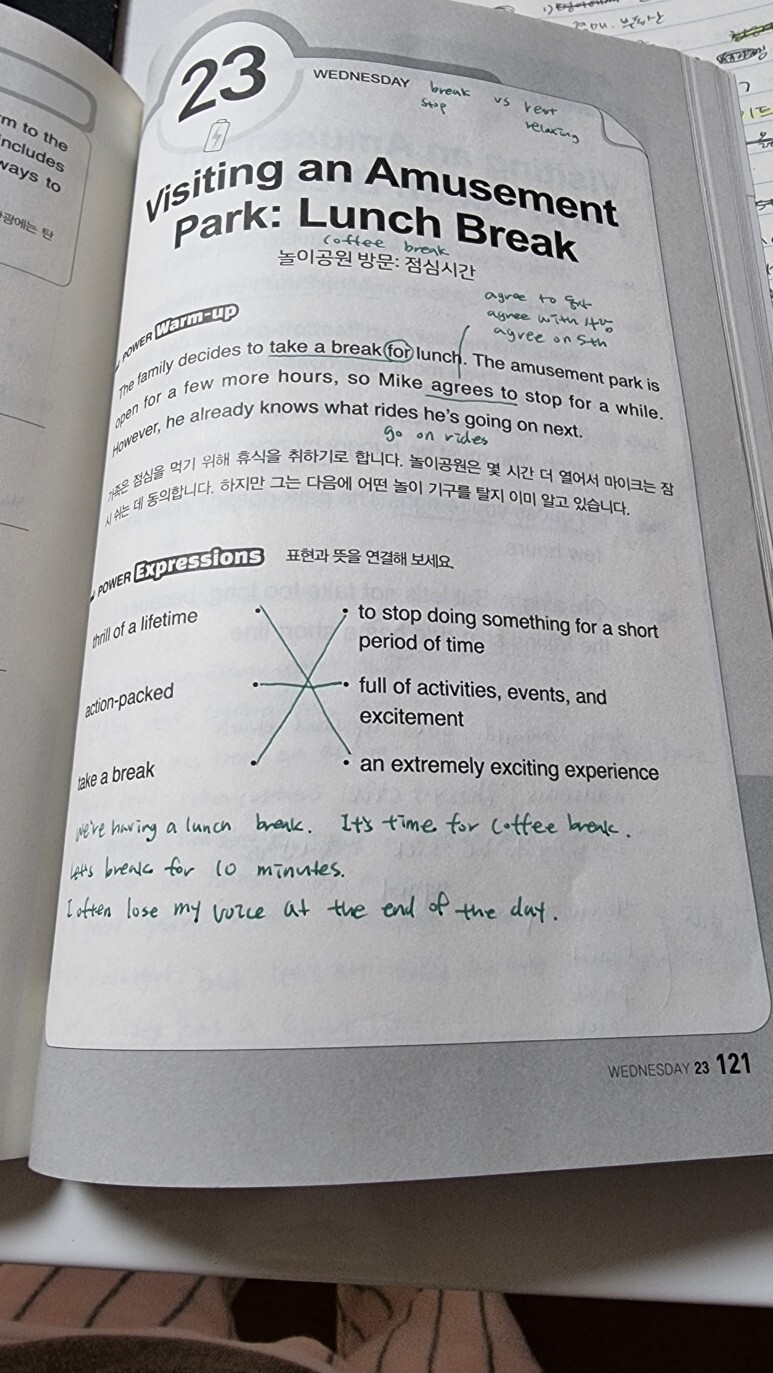 m to the
includes
ways to
관광에는 탄
23
WEDNESDAY
break vs rest
stop relaxing
Visiting an Amusement
Park: Lunch Break
coffee break
놀이공원 방문: 점심시간
agree to
agree with
agree on sth
POWER Warm-up
The family decides to take a break for lunch. The amusement park is
open for a few more hours, so Mike agrees to stop for a while.
However, he already knows what rides he's going on next.
go on rides
가족은 점심을 먹기 위해 휴식을 취하기로 합니다. 놀이공원은 몇 시간 더 열어서 마이크는 잠
시 쉬는 데 동의합니다. 하지만 그는 다음에 어떤 놀이 기구를 탈지 이미 알고 있습니다.
POWER Expressions 표현과 뜻을 연결해 보세요.
thrill of a lifetime
• to stop doing something for a short
period of time
action-packed
• full of activities, events, and
excitement
take a break
• an extremely exciting experience
We're having a lunch break. It's time for coffee break.
Let's break for 10 minutes.
I often lose my voice at the end of the day.
WEDNESDAY 23 121